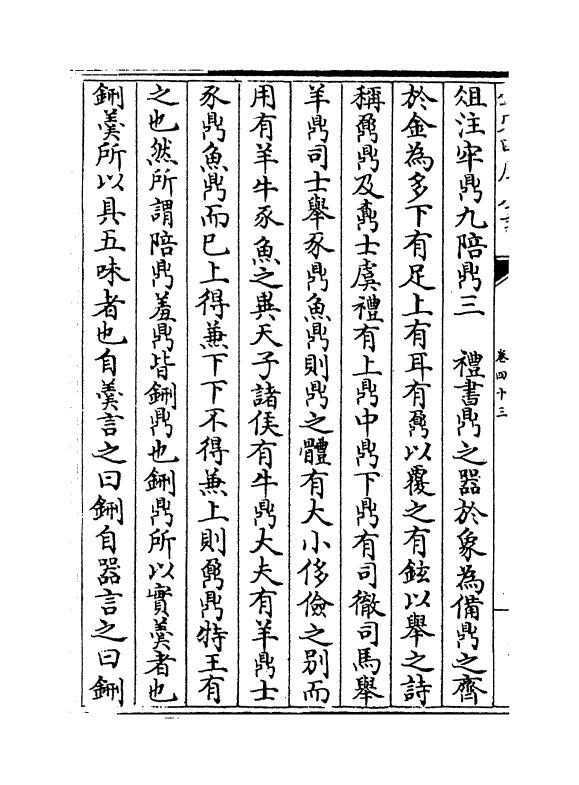 卷四十三
俎注牢鼎九陪鼎三　禮書鼎之器於象為備鼎之齊
於金為多下有足上有耳有鼏以覆之有鉉以舉之詩
稱鼐鼎及鼒士虞禮有上鼎中鼎下鼎有司徹司馬舉
羊鼎司士舉豕鼎魚鼎則鼎之體有大小侈儉之别而
用有羊牛豕魚之異天子諸侯有牛鼎大夫有羊鼎士
豕鼎魚鼎而已上得兼下下不得兼上則鼐鼎特王有
之也然所謂陪鼎羞鼎皆鉶鼎也鉶鼎所以實羹者也
鉶羹所以具五味者也自羹言之曰鉶自器言之曰鉶